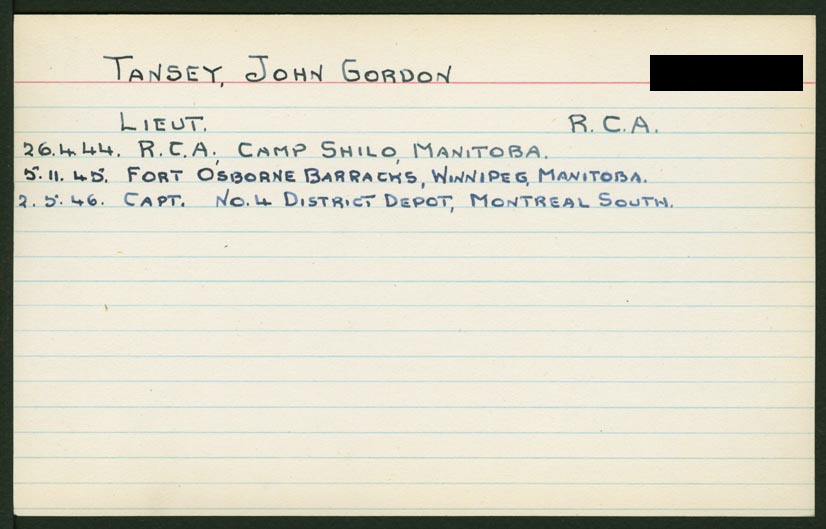 TANSEY, JOHN GORDON
LIEUT. R.C.A.
26.4.44. R.C.A., CAMP SHILO, MANITOBA.
5.11.45. FORT OSBORNE BARRACKS, WINNIPEG, MANITOBA.
2.5.46. CAPT. NO.4 DISTRICT DEPOT, MONTREAL SOUTH.